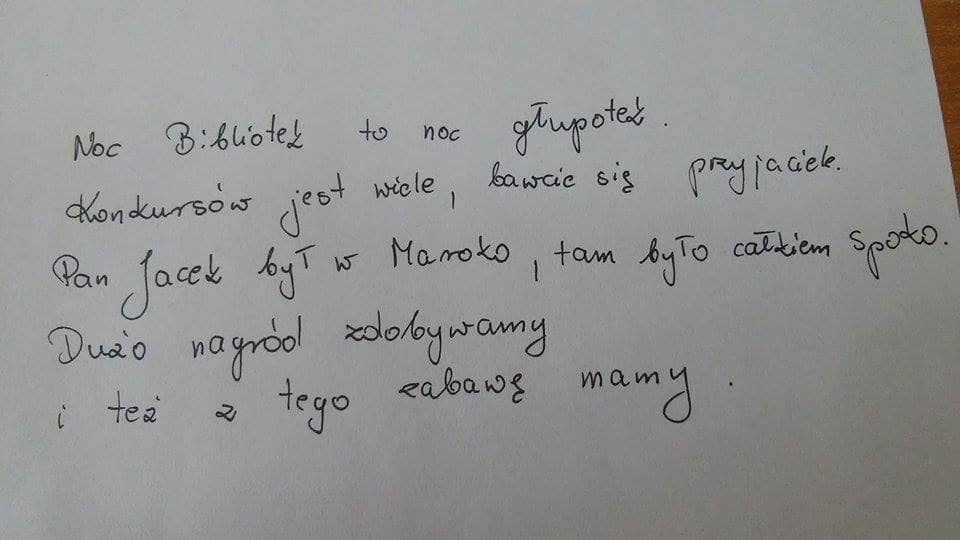 Noc Bibliotek to noc głupotek.
Konkursów jest wiele, bawcie się przyjaciele.
Pan Jacek był w Maroko, tam było całkiem spoko.
Dużo nagród zdobywamy
i też z tego zabawę mamy.